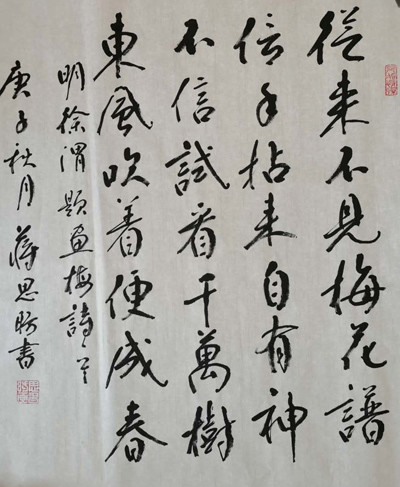 從来不見梅花譜
信手拈来自有神
不信試看千萬樹
東風吹着便成春
明徐渭題画梅詩一首
庚子秋月蔣思
書